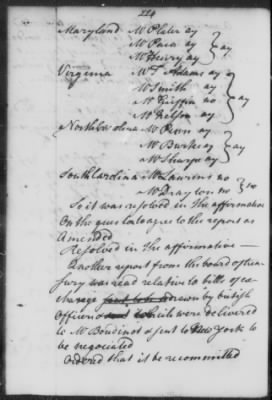 224
Maryland Mr Plater ay
Mr Paca ay } ay
Mr Henry ay
Virginia Mr T Adams ay
Mr Smith ay } ay
Mr Griffin no
Mr Nelson ay
North Carolina Mr Penn ay
Mr Burke ay } ay
Mr Sharpe ay
South Carolina Mr Laurens no
Mr Drayton no } no
So it was resolved in the affirmative
On the question to agree to the report as
Amended
Resolved in the affirmative —
Another report from the board of trea-
sury was read relative to bills of ex-
change sent to be drawn by british
Officers which were delivered
to Mr Boudinot & sent to New York to
be negotiated
Ordered that it be recommitted